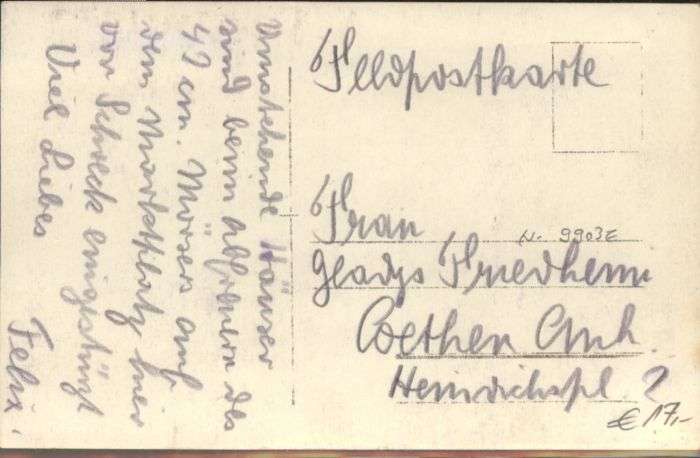 Umstehende Häuser
sind beim Abfeuern des
42 cm. Mörsers auf
dem Marktplatz hier
vor Schreck eingestürzt
Viel Liebes
Felix.
Feldpostkarte
Frau
N. 9903E
Gladys Friedheim
Coethen Anh.
Heinrichspl. 2
€ 17,-